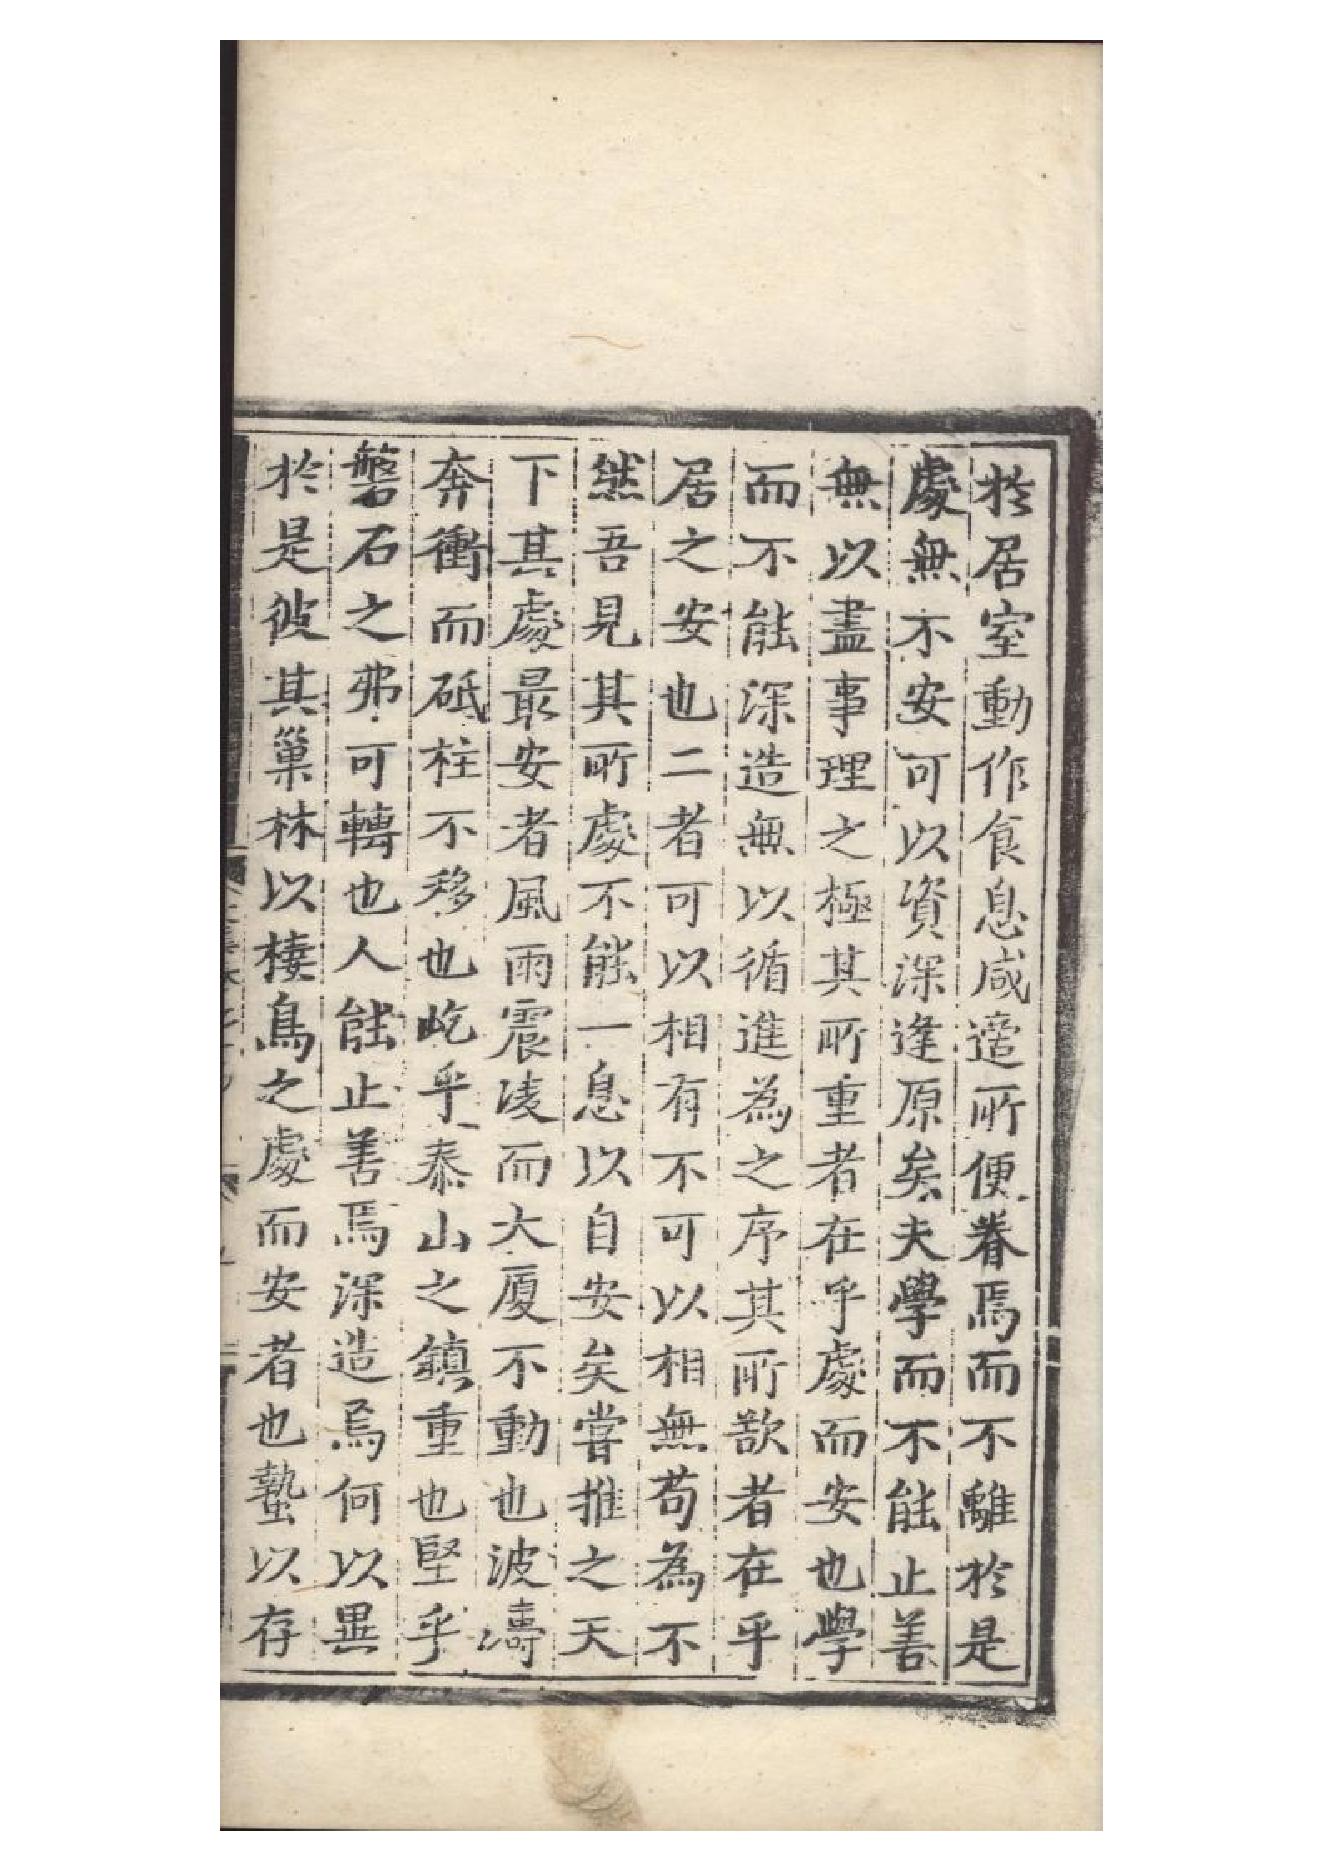 於居室動作食息咸適所便眷焉而不離於是
處無不安可以資深逢原矣夫學而不能止善
無以盡事理之極其所重者在乎處而安也學
而不能深造無以循進為之序其所歆者在乎
居之安也二者可以相有不可以相無苟為不
然吾見其所處不能一息以自安矣嘗推之天
下其處最安者風雨震凌而大廈不動也波濤
奔衝而砥柱不移也屹乎泰山之鎮重也堅乎
磐石之弗可轉也人能止善焉深造焉何以異
於是彼其巢林以棲鳥之處而安者也蟄以存